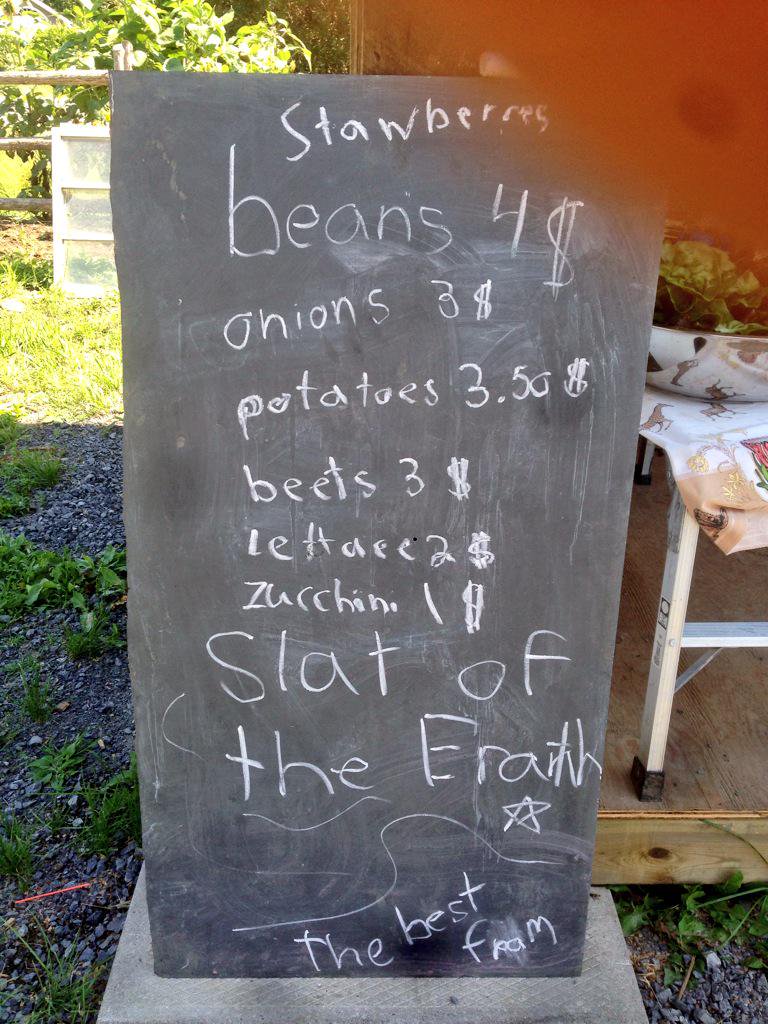 Stawberres
beans 4$
onions 3$
potatoes 3.50$
beets 3$
lettace 2$
zucchini 1$
Slat of
the Eraith
the best
fram